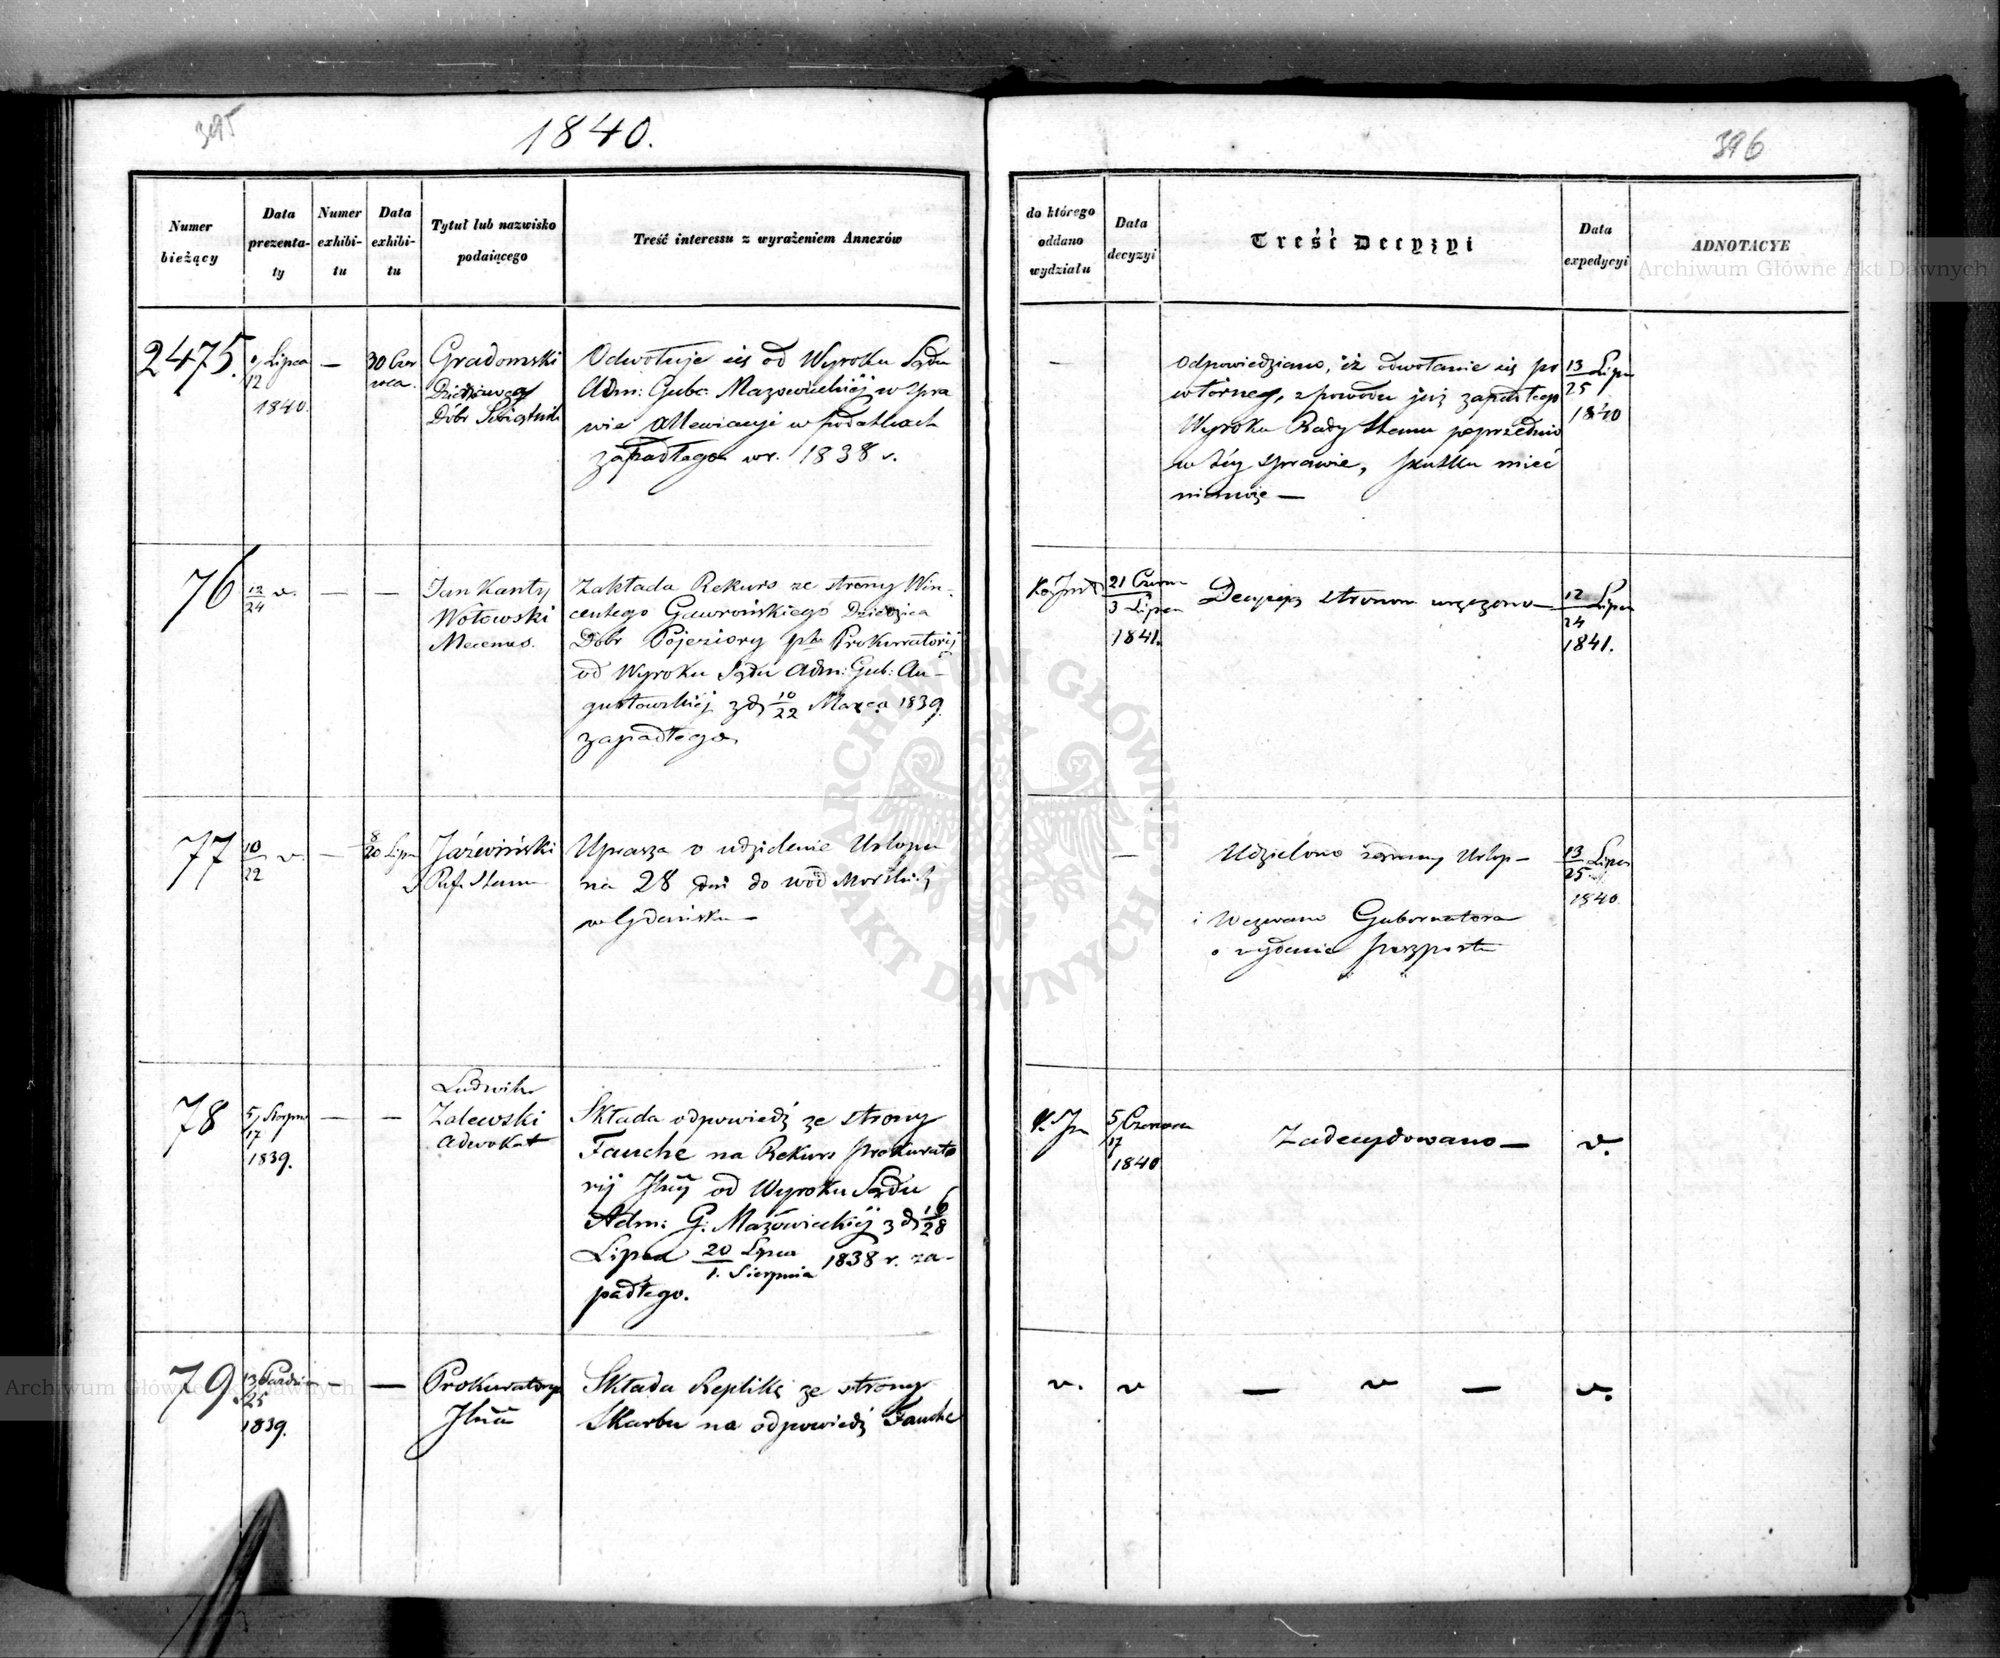 395
1840.
396
Numer bieżący
Data prezenta-ty
Numer exhibi-tu
Data exhibi-tu
Tytuł lub nazwisko podaiącego
Treść interessu z wyrażeniem Annexów
do którego oddano wydziału
Data decyzyi
Treść Decyzyi
Data expedycyi
ADNOTACYE
2475.
Lipca
12
1840.
—
30 Czer
wca.
Gradomski
Dóbr
Odwołuje się od Wyroku Sądu
Adm: Gubc: Mazowieckiéj w spra
wie w podatkach
zapadłego w r. 1838 r.
—
Odpowiedziano, iż odwołanie się po
wtórneg, z powodu już zapadłego
Wyroku Rady Stanu poprzednio
w téy sprawie, skutku mieć
niemoże —
13 Lipca
25
1840
76
12 v.
24
—
—
Jan Kanty
Wołowski
Mecenas.
Zakłada Rekurs ze strony Win-
centego Gawrońskiego Dziedzica
Dóbr Pojeziory pko Prokuratorij
od Wyroku Sądu Adm: Gub: Au-
gustowskiéj z d 10/22 Marca 1839
zapadłego
21 Czerw
3 Lipca
1841.
Decyzyą stronom wręczono —
12 Lipca
24
1841.
77
10 v.
22
—
8
20 Lipca
Jaźwiński
Ref. Stanu
Uprasza o udzielenie Urlopu
na 28 dni do wód Morskich
w Gdańsku —
—
Udzielono żądany Urlop —
i Wezwano Gubernatora
o wydanie paszportu
13 Lipca
25
1840
78
5 Sierpnia
17
1839.
—
—
Ludwik
Zalewski
Adwokat
Składa odpowiedź ze strony
Fauche na Rekurs Prokurato
rij od Wyroku Sądu
Adm: G: Mazowieckiéj z d 16/28
Lipca 20 Lipca 1838 r. za-
1. Sierpnia
padłego.
5 Czerwca
17
1840
Zadecydowano —
v.
79.
13 Paździ
25
1839.
—
—
Prokuratorya
Składa Replikę ze strony
Skarbu na odpowiedź Fauche
v.
v
— v —
v.
ARCHIWUM GŁÓWNE AKT DAWNYCH
Archiwum Główne Akt Dawnych
Archiwum Główne Akt Dawnych